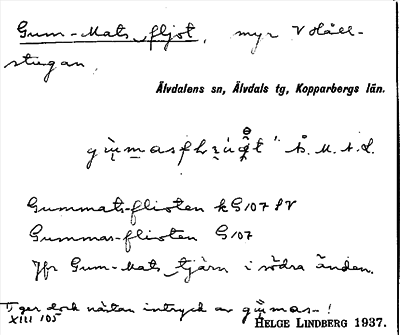 Gum-Mats fljot, myr V Håll-
stugan.
Älvdalens sn, Älvdals tg, Kopparbergs län.
Å. M. A. L.
Gummats-flisten k G107 SV
Gummas-flisten G107
Jfr Gum-Mats tjärn i södra änden.
T. ger dock nästan intryck av gùmas-!
XIII 105
HELGE LINDBERG 1937.